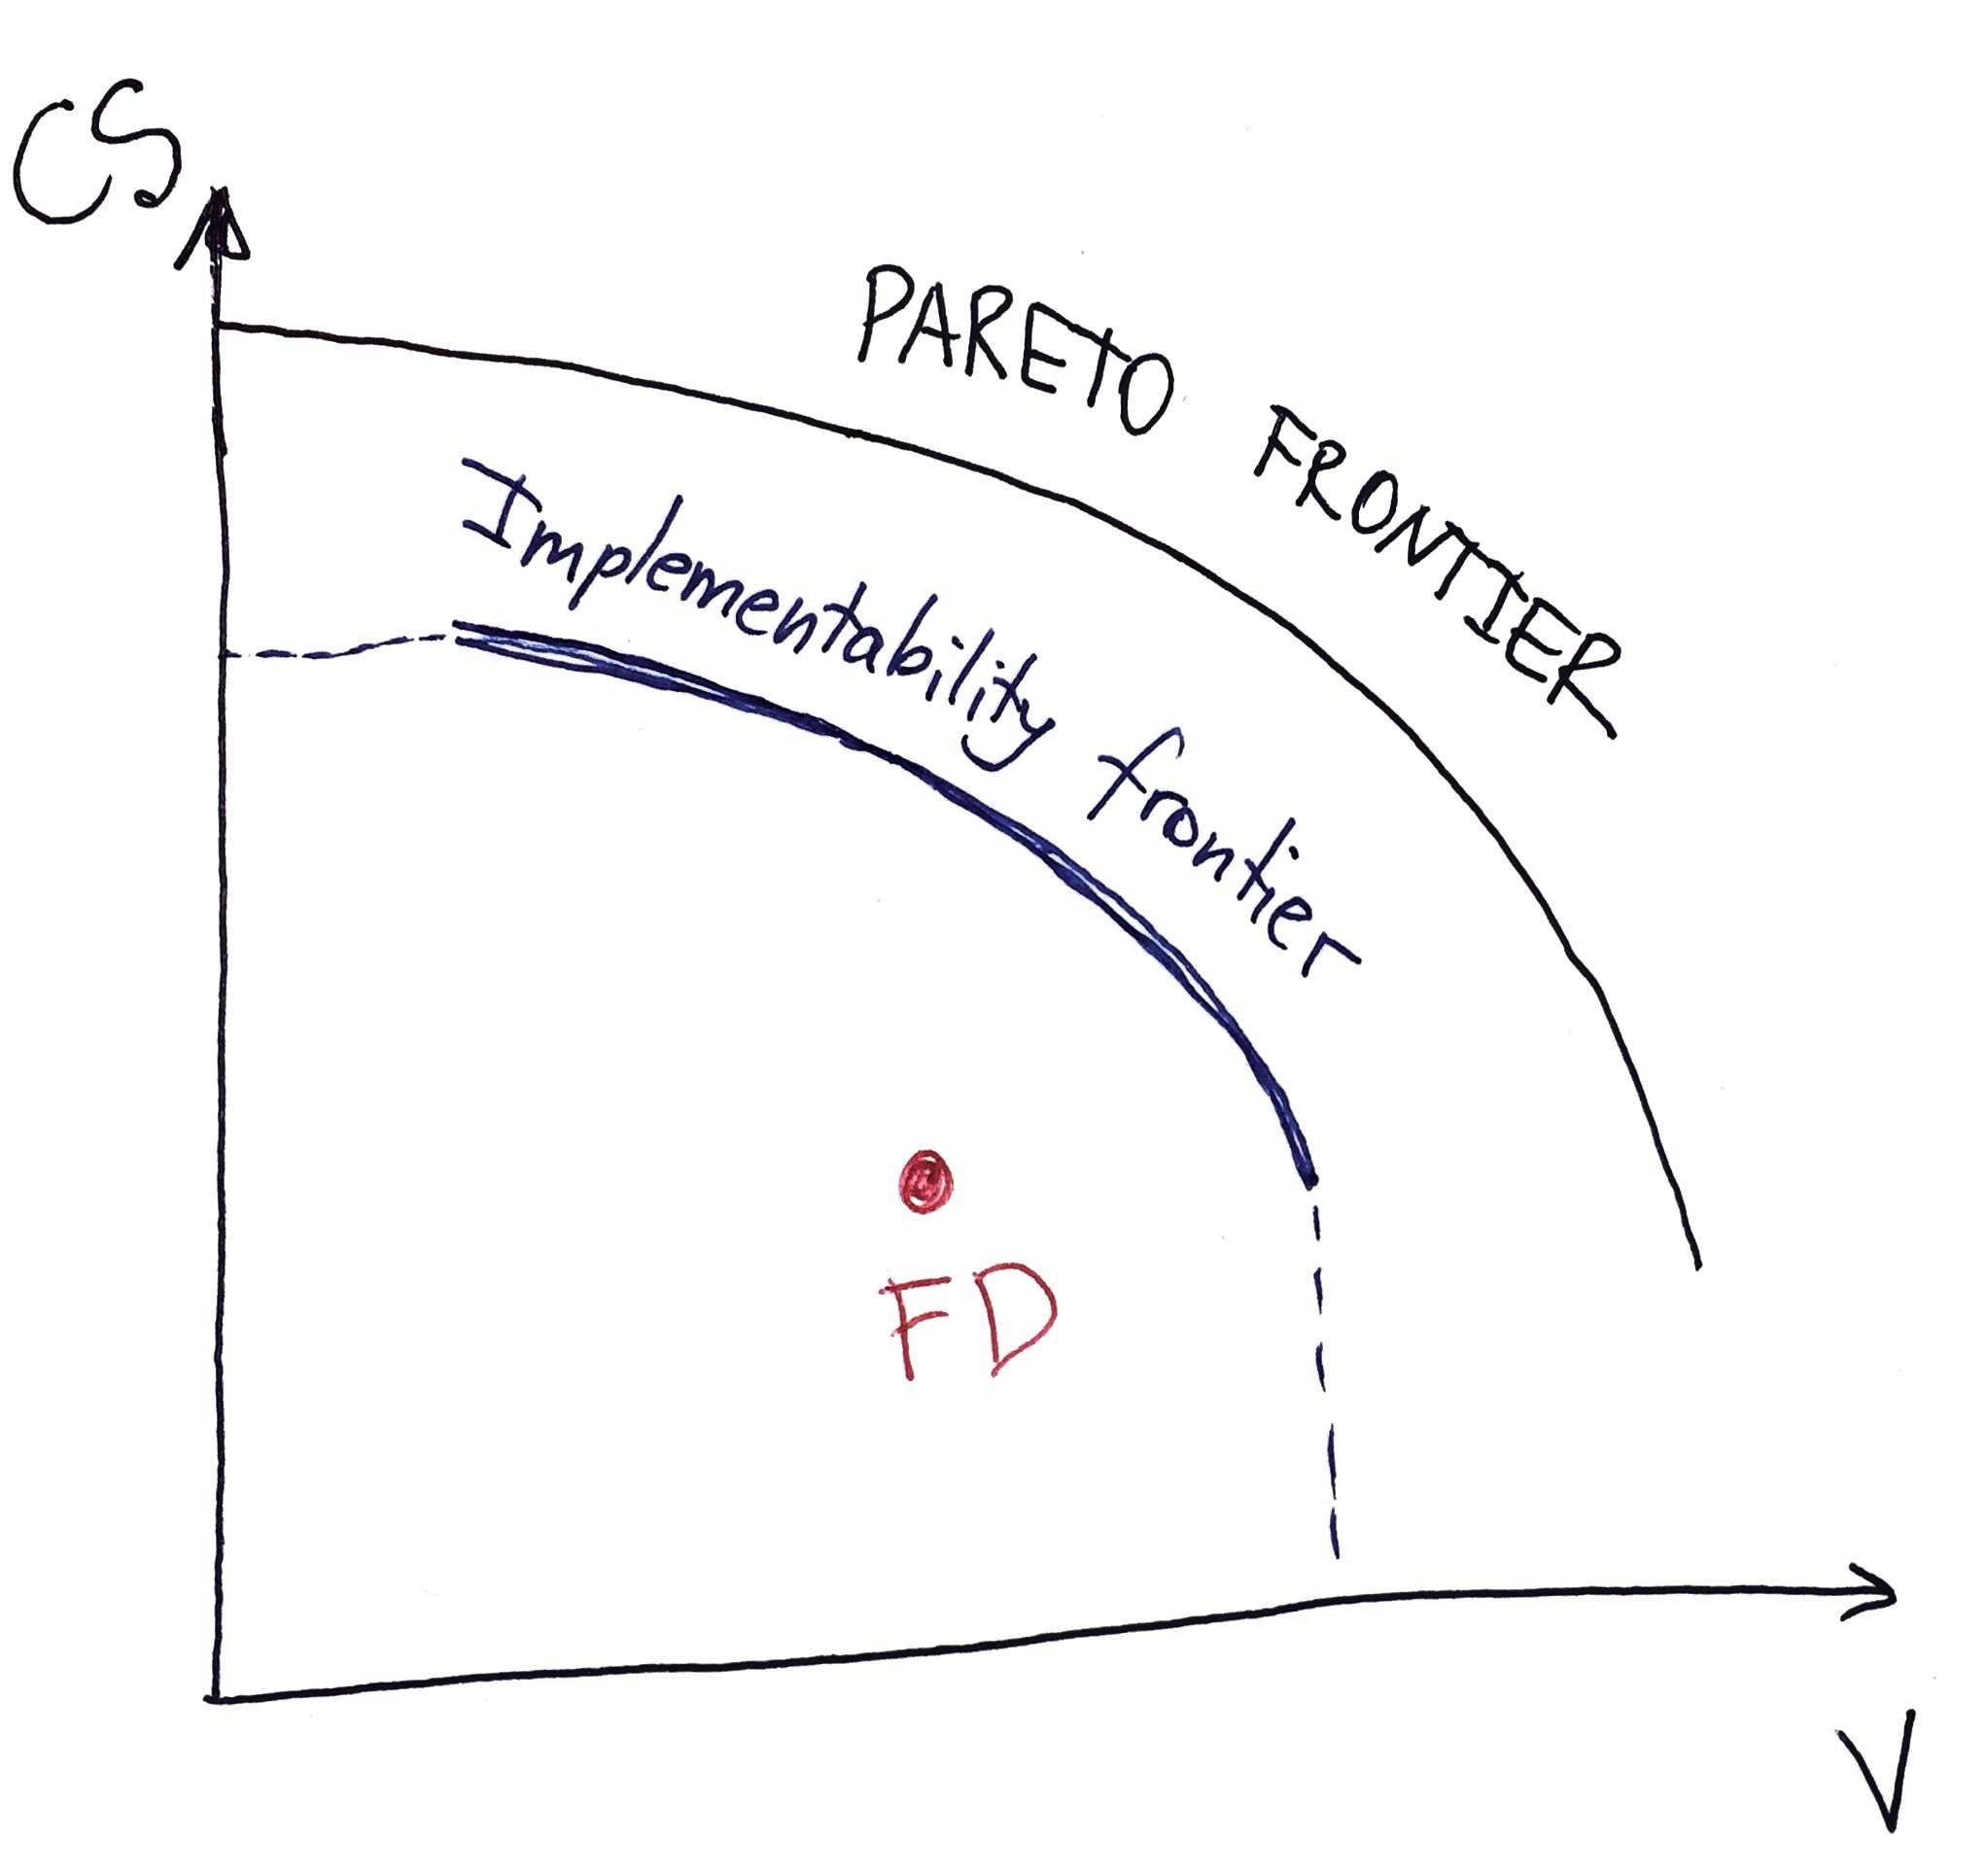 CS
PARETO FRONTIER
Implementability frontier
FD
V